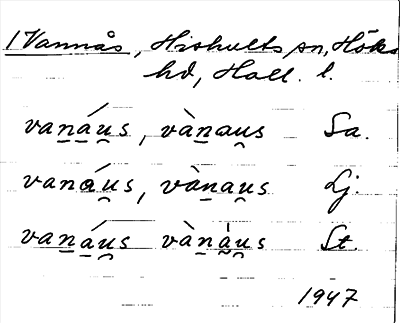 1 Vannås, Hishults sn, Höks
hd, Hall. l.
vanáu̯s, vànau̯s Sa.
vanáu̯s, vànau̯s Lj.
vanáu̯s vànàu̯s St.
1947